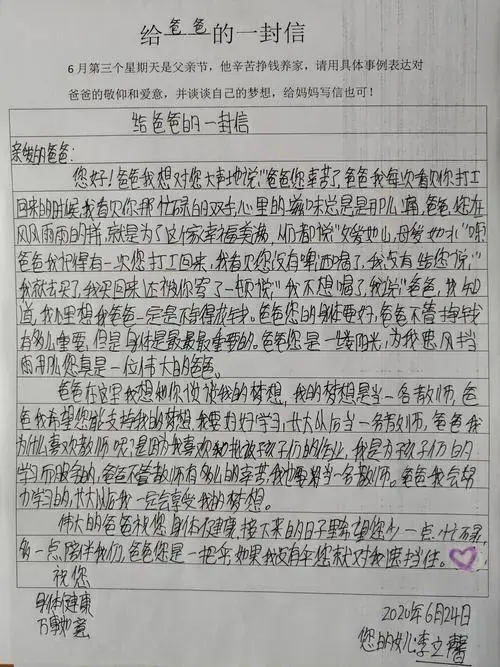 给爸爸的一封信
6月第三个星期天是父亲节,他辛苦挣钱养家,请用具体事例表达对
爸爸的敬仰和爱意,并谈谈自己的梦想,给妈妈写信也可!
给爸爸的一封信
亲爱的爸爸:
您好!爸爸我想对您大声地说:"爸爸您辛苦了,爸爸我每次看见你打工
回来的时候,我看见你那忙碌的双手,心里的滋味总是是那么痛,爸爸,您在
风风雨雨的拼,就是为了这个家幸福美满,人们都说"父爱如山,母爱如水"
爸爸我记得有一次您打工回来,我看见您没有啤酒喝了,我没有给您说,"
我就去买了,我买回来还被你骂了一顿说:"我不想喝了,我说"爸爸,我知
道,我心里想我爸爸一定是不舍得花钱。爸爸您的身体要好,爸爸不管挣钱
有多么重要,但是身体是最最重要的。爸爸您是一缕阳光,为我遮风挡
雨,那么您真是一位伟大的爸爸。
爸爸在这里我想和你说说我的梦想,我的梦想是当一名教师,爸
爸我希望您能支持我的梦想,我要好好学习,长大以后当一名教师,爸爸我
为什么喜欢教师呢?是因为我喜欢孩子们的作业,我是为孩子们的
学习而服务的,爸爸不管教师有多么的辛苦,我也要当一名教师。爸爸我会努
力学习的,长大以后我一定会享受我的梦想。
伟大的爸爸祝您身体健康,接下来的日子里希望您少一点忙碌,
多一点陪伴我们,爸爸您是一把伞,如果我没有伞您就对我遮挡住。
祝您
身体健康
万事如意
2020年6月24日
您的女儿李立馨